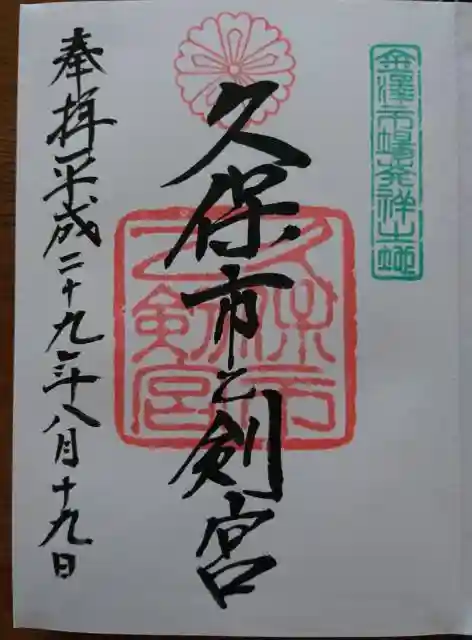 金澤市場発祥之地
久保市乙剣宮
久保市
乙剣宮
奉拝平成二十九年八月十九日